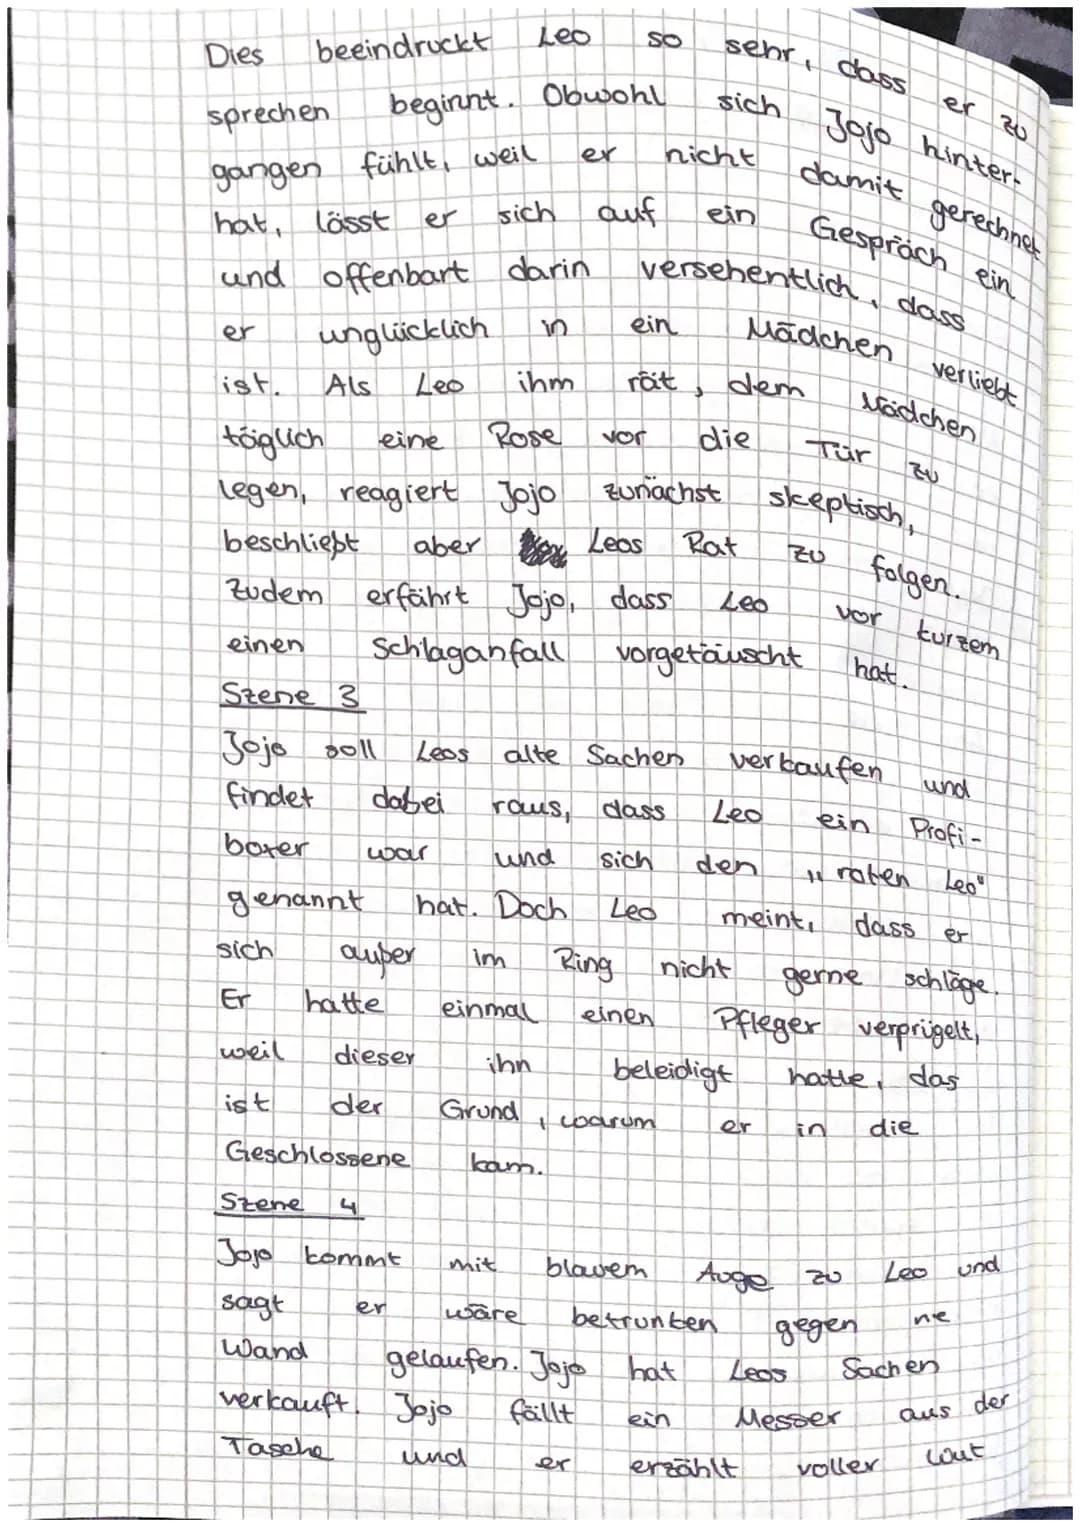 Dies beeindruckt Leo so sehr, dass er zu
sprechen beginnt. Obwohl sich Jojo hinter-
gangen fühlt, weil er nicht damit gerechnet
hat, lässt er sich auf ein Gespräch ein
und offenbart darin versehentlich, dass
er unglücklich in ein Mädchen verliebt
ist. Als Leo ihm rät, dem Mädchen
täglich eine Rose vor die Tür zu
legen, reagiert Jojo zunächst skeptisch,
beschließt aber Leos Rat zu folgen.
Zudem erfährt Jojo, dass Leo vor kurzem
einen Schlaganfall vorgetäuscht hat.
Szene 3
Jojo soll Leos alte Sachen verkaufen und
findet dabei raus, dass Leo ein Profi-
boxer war und sich den „roten Leo"
genannt hat. Doch Leo meint, dass er
sich außer im Ring nicht gerne schläge.
Er hatte einmal einen Pfleger verprügelt,
weil dieser ihn beleidigt hatte, das
ist der Grund, warum er in die
Geschlossene kam.
Szene 4
Jojo kommt mit blauem Auge zu Leo und
sagt er wäre betrunken gegen ne
Wand gelaufen. Jojo hat Leos Sachen
verkauft. Jojo fällt ein Messer aus der
Tasche und er erzählt voller Wut